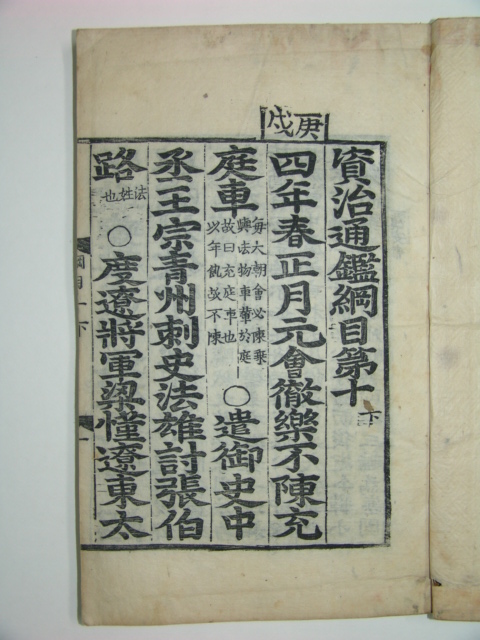 庚戌
資治通鑑綱目第十下
四年春正月元會徹樂不陳充
庭車
每大朝會必陳乘
輿法物車輦於庭
故曰充庭車也
以年飢故不陳
○遣御史中
丞王宗青州刺史法雄討張伯
路
法姓也
○度遼將軍梁慬遼東太